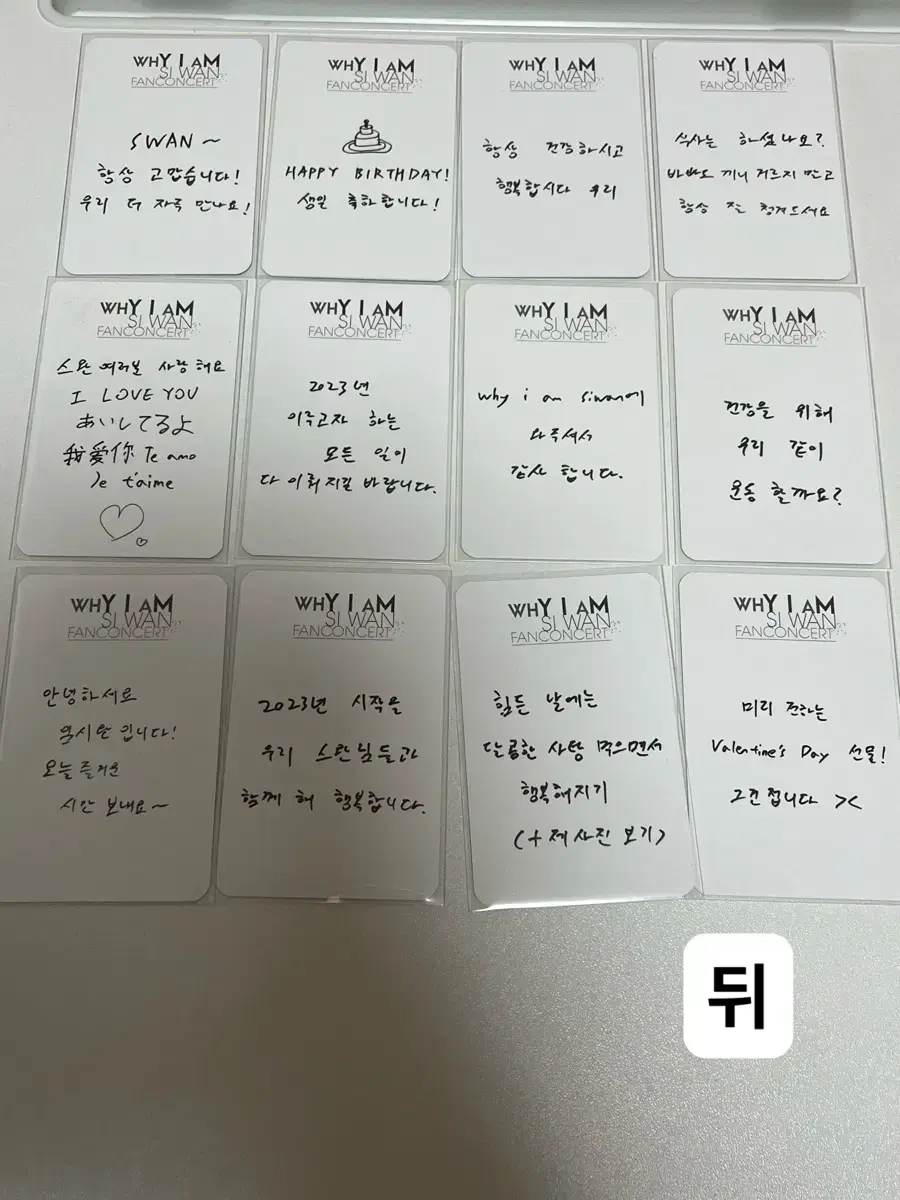 WHY I AM
SI WAN
FANCONCERT
SWAN ~
항상 고맙습니다!
우리 더 자주 만나요!
WHY I AM
SI WAN
FANCONCERT
HAPPY BIRTHDAY!
생일 축하합니다!
WHY I AM
SI WAN
FANCONCERT
항상 건강하시고
행복합시다 우리
WHY I AM
SI WAN
FANCONCERT
식사는 하셨나요?
바빠도 끼니 거르지 말고
항상 잘 챙겨드세요
WHY I AM
SI WAN
FANCONCERT
스완 여러분 사랑해요
I LOVE YOU
あいしてるよ
我愛你 Te amo
Je t'aime
WHY I AM
SI WAN
FANCONCERT
2023년
이루고자 하는
모든 일이
다 이뤄지길 바랍니다.
WHY I AM
SI WAN
FANCONCERT
why i am siwan에
와주셔서
감사 합니다.
WHY I AM
SI WAN
FANCONCERT
건강을 위해
우리 같이
운동 할까요?
WHY I AM
SI WAN
FANCONCERT
안녕하세요
임시완 입니다!
오늘 즐거운
시간 보내요~
WHY I AM
SI WAN
FANCONCERT
2023년 시작을
우리 스완님들과
함께 해 행복합니다.
WHY I AM
SI WAN
FANCONCERT
힘든 날에는
달콤한 사탕 먹으면서
행복해지기
(+제 사진 보기)
WHY I AM
SI WAN
FANCONCERT
미리 전하는
Valentine's Day 선물!
그건 접니다 ><
뒤